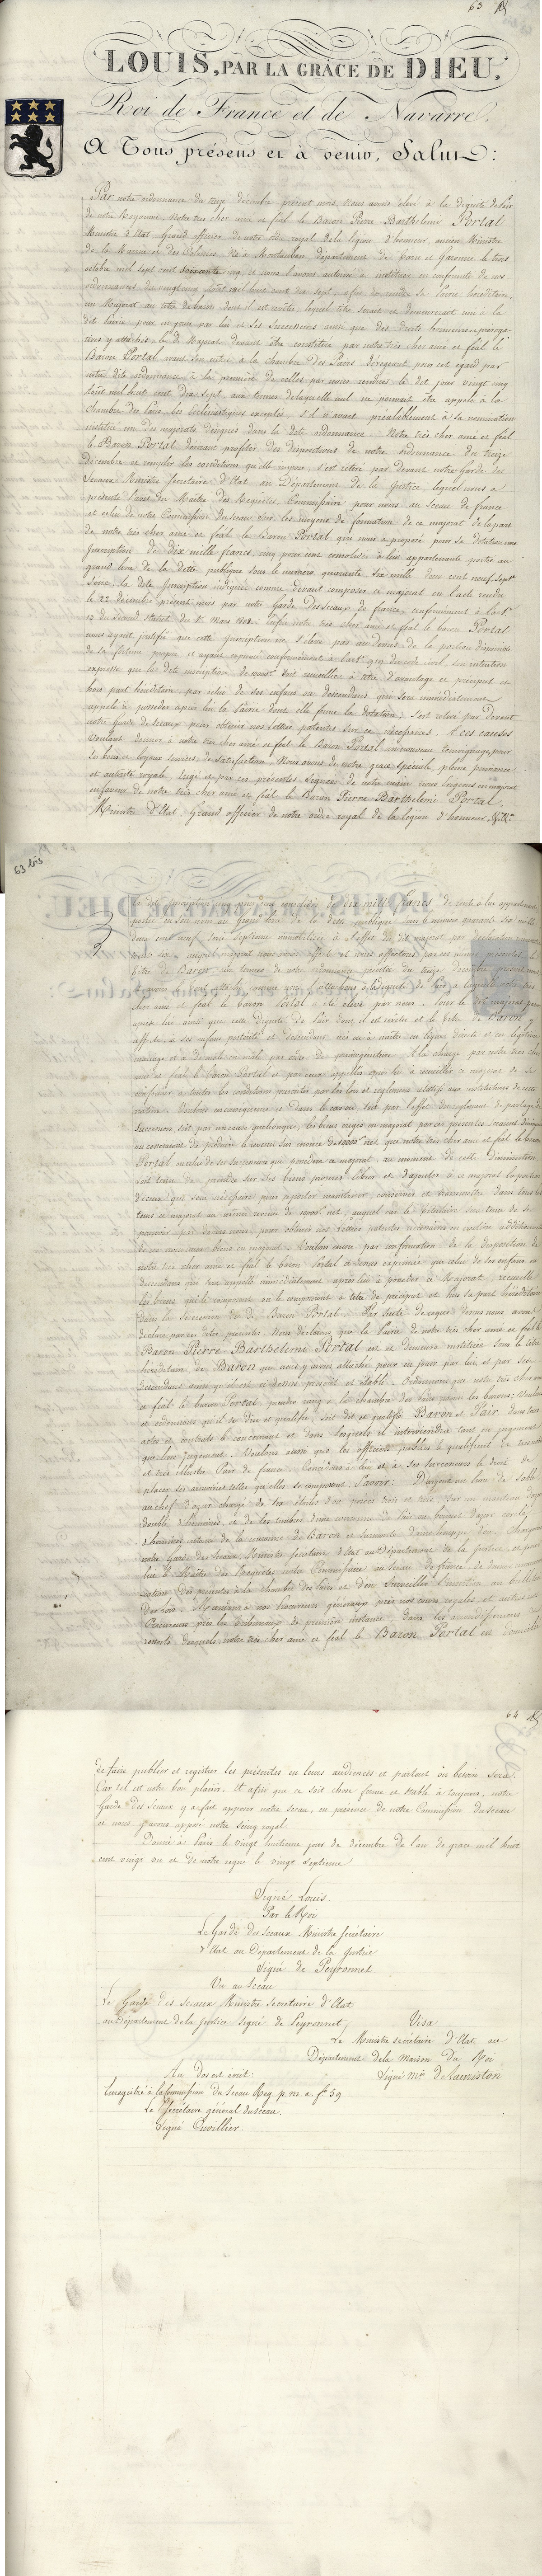 63
LOUIS, PAR LA GRÂCE DE DIEU,
Roi de France et de Navarre,
A Tous présens et à venir, Salut:
Par notre ordonnance du treize décembre présent mois, Nous avons élevé à la dignité de Pair
de notre Royaume notre très cher amé et féal le Baron Pierre Barthelemi Portal
Ministre d'Etat Grand officier de notre ordre royal de la légion d'honneur, ancien Ministre
de la Marine et des Colonies, né à Montauban département de Tarn et Garonne le trois
octobre mil sept cent soixante cinq, et nous l'avons autorisé à instituer en conformité de nos
ordonnances du vingt cinq Août mil huit cent dix sept, afin de rendre sa Pairie héréditaire,
un Majorat au titre de baron dont il est revêtu, lequel titre serait et demeurerait uni à la
dite Pairie, pour en jouir par lui et ses Successeurs ainsi que des droits honneurs et préroga-
tives y attachés. Le dit Majorat devant être constitué par notre très cher amé et féal le
Baron Portal avant son entrée à la chambre des Pairs. Dérogeant pour cet égard par
notre dite ordonnance à la première de celles par nous rendues le dit jour vingt cinq
Août mil huit cent dix sept, aux termes de laquelle nul ne pourrait être appelé à la
chambre des Pairs, les ecclésiastiques exceptés, s'il n'avait préalablement à sa nomination
institué un des majorats désignés dans la dite ordonnance. Notre très cher amé et féal
le Baron Portal désirant profiter des dispositions de notre ordonnance du treize
Décembre et remplir les conditions qu'elle impose, s'est retiré par devant notre Garde des
Sceaux Ministre secrétaire d'Etat au Département de la Justice, lequel nous a
présenté l'avis du Maître des Requêtes, Commissaire pour nous au Sceau de france
et celui de notre Commission du sceau sur les moyens de formation de ce majorat de la part
de notre très cher amé et féal le Baron Portal qui nous a proposé pour sa dotation une
Inscription de Dix mille francs, cinq pour cent consolidés à lui appartenante portée au
grand livre de la dette publique sous le numéro quarante six mille deux cent neuf, Sept.
Série, la dite Inscription indiquée comme devant composer ce majorat en l'acte rendu
le 22 décembre présent mois par notre Garde des Sceaux de france, conformément à l'art.
12 du Second Statut du 1er Mars 1808. Enfin notre très cher amé et féal le baron Portal
nous ayant justifié que cette Inscription ne s'élève pas au dessus de la portion disponible
de sa fortune propre et ayant exprimé conformément à l'art. 919 du code civil son intention
expresse que la dite inscription de 10000f soit recueillie à titre d'avantage et préciput et
hors part héréditaire par celui de ses enfans ou descendans qui sera immédiatement
appelé à posséder après lui la Pairie dont elle forme la dotation; s'est retiré par devant
notre Garde des Sceaux pour obtenir nos lettres patentes sur ce nécessaires. A ces causes
Voulant donner à notre très cher amé et féal le Baron Portal un nouveau témoignage, pour
ses bons et loyaux services de Satisfaction. Nous avons de notre grace spéciale, pleine puissance
et autorité royale érigé et par ces présentes signées de notre main, nous érigeons en majorat
en faveur de notre très cher amé et féal le Baron Pierre Barthelemi Portal,
Ministre d'Etat Grand officier de notre ordre royal de la légion d'honneur,
63 bis
la dite Inscription cinq pour cent consolidés de dix mille francs de rente à lui appartenante
portée en son nom au Grand livre de la dette publique sous le numéro quarante six mille
deux cent neuf, Série Septième immobilisée à l'effet du dit majorat par
auquel majorat nous avons affecté et nous affectons par ces mêmes présentes le
titre de Baron aux termes de notre ordonnance précitée du treize décembre présent mois
cher amé et féal le baron Portal a été élevé par nous. Pour le dit majorat passer
après lui ainsi que cette dignité de Pair dont il est revêtu et le titre de Baron y
affecté à ses enfans postérité et descendans nés ou à naître en ligne directe et en légitime
mariage et de mâle en mâle par ordre de primogéniture. A la charge par notre très cher
amé et féal le Baron Portal et par ceux appelés après lui à recueillir ce majorat de se
conformer à toutes les conditions prescrites par les lois et réglemens relatifs aux institutions de cette
nature. Voulons en conséquence que dans le cas où, soit par l'effet des réglemens de partage de
succession soit par une cause quelconque, les biens érigés en majorat par ces présentes
ou cesseraient de produire le revenu sus énoncé de 10000f net que notre très cher amé et féal le baron
Portal ou celui de ses successeurs qui possédera ce majorat au moment de cette diminution
soit tenu de prendre sur ses biens propres libres et d'ajouter à ce majorat la portion
d'iceux qui sera nécessaire pour reporter maintenir, conserver et transmettre dans tous les
tems ce majorat au même revenu de 10000f net, auquel cas le titulaire sera tenu de se
pourvoir par devers nous pour obtenir nos lettres patentes
de ces nouveaux biens en majorat. Voulons encore par confirmation de la disposition de
notre très cher amé et féal le baron Portal ci dessus exprimée que celui de ses enfans ou
descendans qui sera appelé immédiatement après lui à posséder ce Majorat recueille
les biens qui le composent ou le composeront à titre de préciput et hors de part héréditaire
dans la Succession du dit Baron Portal. Par suite de ce que dessus nous avons
déclaré par ces dites présentes, Nous déclarons que la Pairie de notre très cher amé et féal le
Baron Pierre Barthelemi Portal est et demeure instituée sous le titre
héréditaire de Baron que nous y avons attaché pour en jouir par lui et par ses
descendans ainsi qu'il est ci dessus prescrit et établi. Ordonnons que notre très cher amé
et féal le baron Portal prendra rang à la chambre des Pairs parmi les barons; Voulons
et ordonnons qu'il se dise et qualifie, soit dit et qualifié Baron et Pair dans tous
actes et contrats le concernant et dans lesquels il interviendra tant en jugement
que hors Jugement. Voulons aussi que les officiers publics le qualifient de très noble
et très illustre Pair de france. Concédons à lui et à ses Successeurs le droit de
placer ses armoiries telles qu'elles se composent, Savoir: D'argent au lion de Sable
au chef d'azur chargé de six étoiles d'or posées trois et trois sur un manteau d'azur
doublé d'hermine, et de les timbrer d'une couronne de Pair ou bonnet d'azur cerclé
d'hermine et surmonté de la couronne de Baron et surmonté d'une houppe d'or. Chargeons
notre Garde des Sceaux Ministre secrétaire d'Etat au Département de la Justice, et pour
lui le Maître des Requêtes notre Commissaire au Sceau de france, de donner
cation des présentes à la chambre des Pairs et d'en surveiller l'insertion au bulletin
des lois. Mandons à nos procureurs généraux près nos cours royales et autres nos
Procureurs près les tribunaux de première instance dans les arrondissemens
ressorts desquels notre très cher amé et féal le Baron Portal est domicilié
64
de faire publier et registrer les présentes en leurs audiences et partout où besoin sera.
Car tel est notre bon plaisir. Et afin que ce soit chose ferme et stable à toujours, notre
Garde des Sceaux y a fait apposer notre Sceau, en présence de notre Commission du sceau
et nous y avons apposé notre seing royal
Donné à Paris le vingt huitieme jour de décembre de l'an de grace mil huit
cent vingt un et de notre regne le vingt septieme
Signé Louis
Par le Roi
Le Garde des Sceaux Ministre secrétaire
d'Etat au Département de la Justice
Signé de Peyronnet
Vu au Sceau
Le Garde des Sceaux Ministre secretaire d'Etat
au Département de la Justice Signé de Peyronnet
Visa
Le Ministre secrétaire d'Etat au
Département de la Maison du Roi
Signé Mis de Lauriston
Au dos est écrit:
Enregistré à la commission du Sceau Reg. p. m. 2 fo 59
Le Secrétaire général du sceau.
Signé Cuvillier.